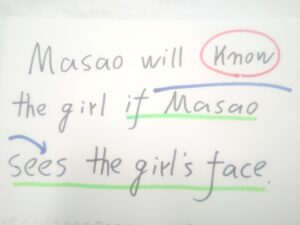 Masao will Know
the girl if Masao
sees the girl's face.